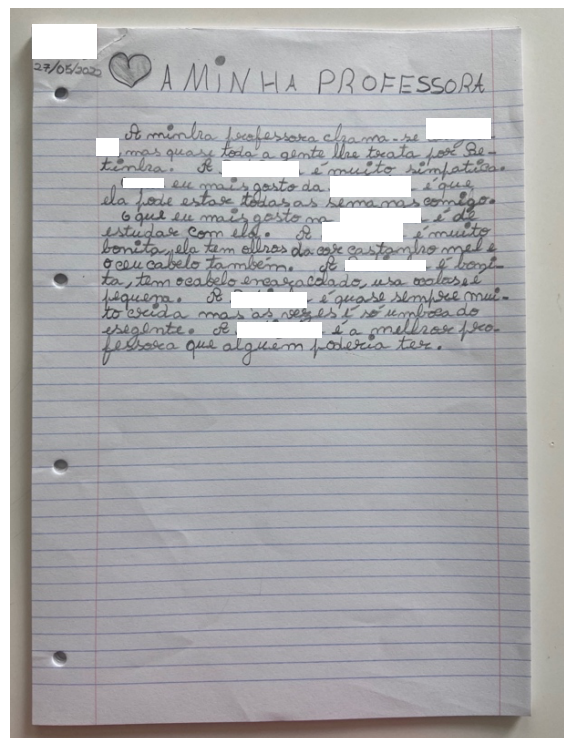 27/05/2022
A MINHA PROFESSORA
A minha professora chama-se
mas quase toda a gente lhe trata por Be-
tinha. A é muito simpatica.
eu mais gosto da é que
ela pode estar todas as semanas comigo.
O que eu mais gosto na é de
estudar com ela. A é muito
bonita, ela tem olhos da cor castanho mel e
o ceu cabelo também. A é boni-
ta, tem o cabelo encaracolado, usa oculos e é
pequena. A é quase sempre mui-
to crida mas as vezes é só um boca do
esegente. A é a melhor pro-
fessora que alguem poderia ter.